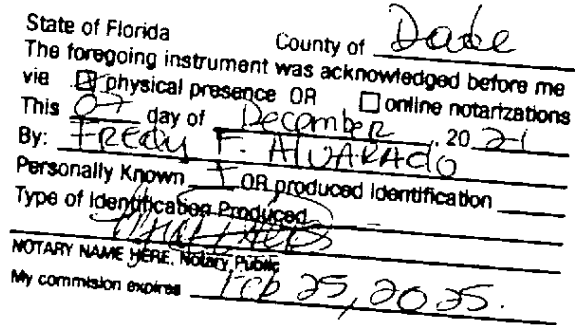 State of Florida County of Dade
The foregoing instrument was acknowledged before me
via ☒ physical presence OR ☐ online notarizations
This 07 day of December, 2021
By: Fredy F. Alvarado
Personally Known OR produced identification
Type of Identification Produced
NOTARY NAME HERE, Notary Public
My commision expires Feb 25, 2025.